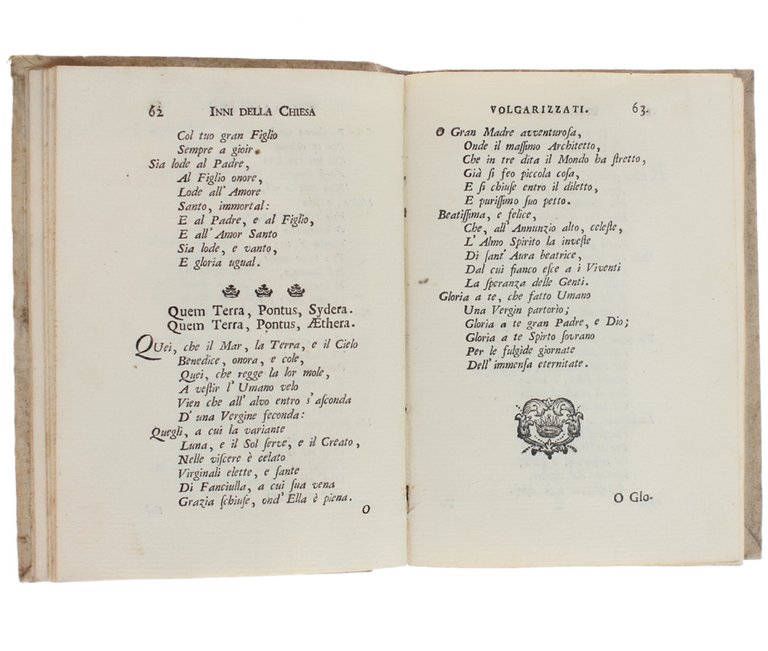 62 INNI DELLA CHIESA
Col tuo gran Figlio
Sempre a gioir.
Sia lode al Padre,
Al Figlio onore,
Lode all' Amore
Santo, immortal:
E al Padre, e al Figlio,
E all' Amor Santo
Sia lode, e vanto,
E gloria ugual.
Quem Terra, Pontus, Sydera.
Quem Terra, Pontus, Æthera.
QUei, che il Mar, la Terra, e il Cielo
Benedice, onora, e cole,
Quei, che regge la lor mole,
A veſtir l' Umano velo
Vien che all' alvo entro s'aſconda
D' una Vergine feconda:
Quegli, a cui la variante
Luna, e il Sol ſerve, e il Creato,
Nelle viſcere è celato
Virginali elette, e ſante
Di Fanciulla, a cui ſua vena
Grazia ſchiuſe, ond' Ella è piena.
O
VOLGARIZZATI. 63.
O Gran Madre avventuroſa,
Onde il maſſimo Architetto,
Che in tre dita il Mondo ha ſtretto,
Già ſi feo piccola coſa,
E ſi chiuſe entro il diletto,
E puriſſimo ſuo petto.
Beatiſſima, e felice,
Che, all' Annunzio alto, celeſte,
L' Almo Spirito la inveſte
Di ſant' Aura beatrice,
Dal cui fianco eſce a i Viventi
La ſperanza delle Genti.
Gloria a te, che fatto Umano
Una Vergin partorio;
Gloria a te gran Padre, e Dio;
Gloria a te Spirto ſovrano
Per le fulgide giornate
Dell' immenſa eternitate.
O Glo-